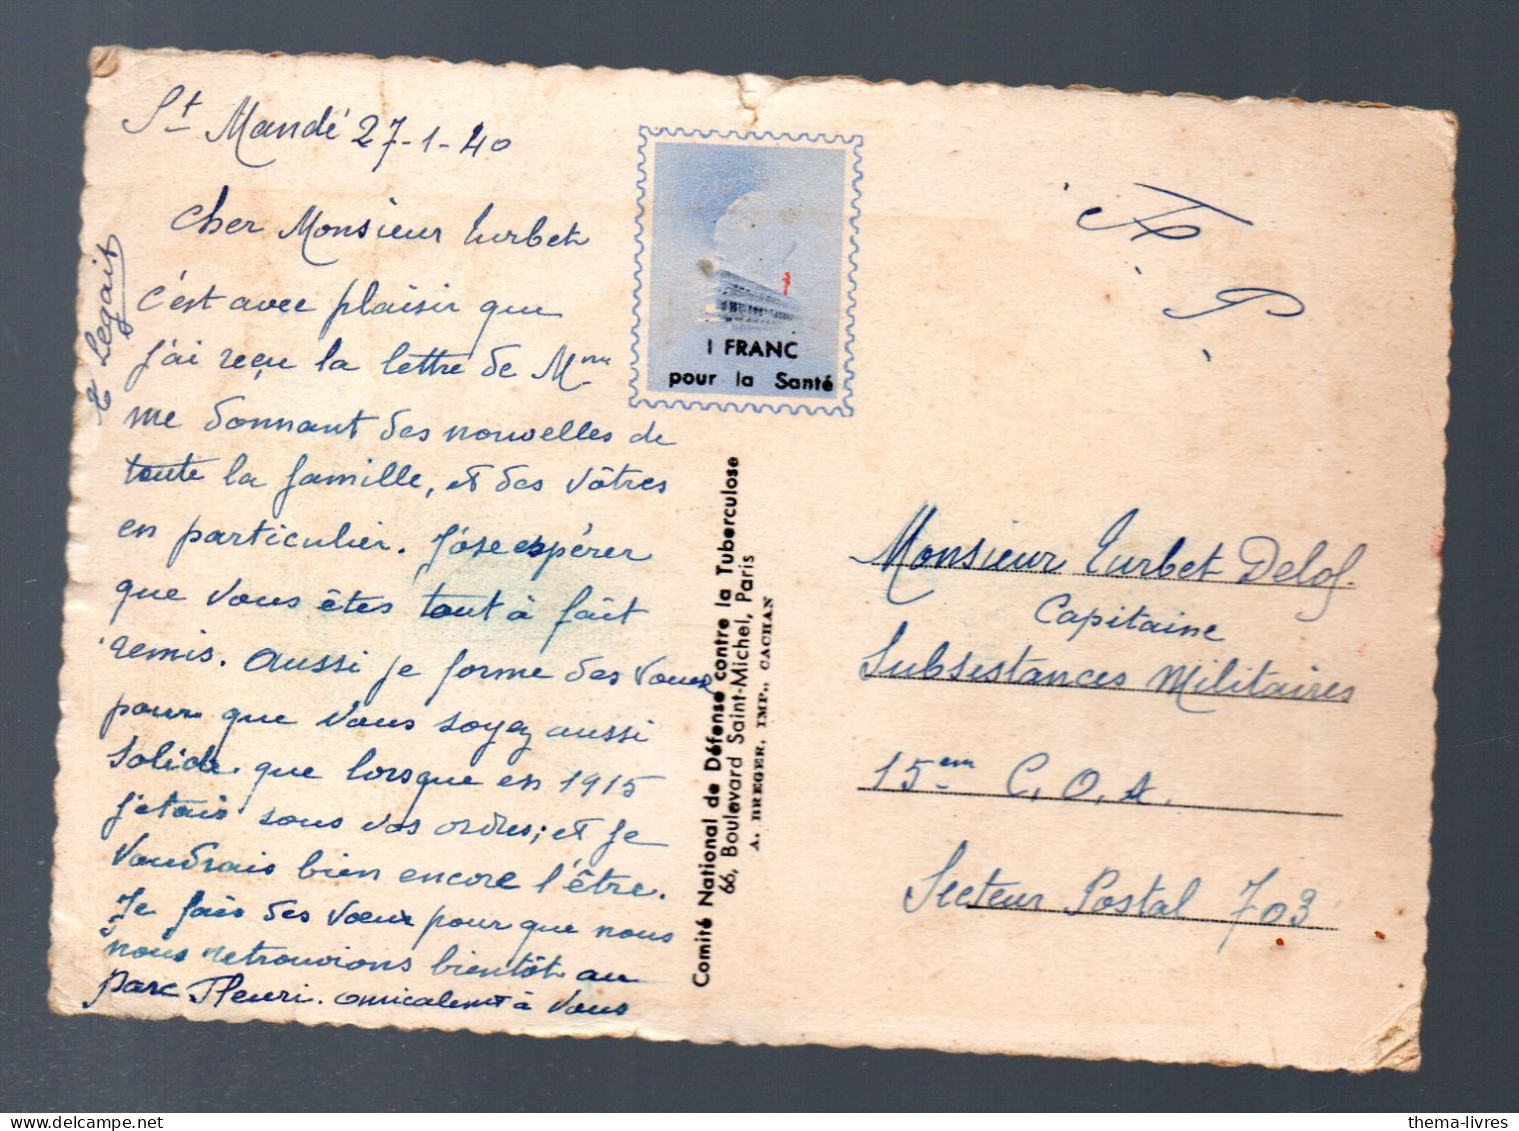 St Mandé 27-1-40
Cher Monsieur Turbet
c'est avec plaisir que
j'ai reçu la lettre de Mme
me donnant des nouvelles de
toute la famille, et des vôtres
en particulier. J'ose espérer
que vous êtes tout à fait
remis. Aussi je forme des voeux
pour que vous soyez aussi
solide que lorsque en 1915
j'étais sous vos ordres; et je
voudrais bien encore l'être.
Je fais des voeux pour que nous
nous retrouvions bientôt au
parc Fleuri. amicalement à vous
Legait
1 FRANC
pour la Santé
Comité National de Défense contre la Tuberculose
66, Boulevard Saint-Michel, Paris
A. BREGER, IMP., CACHAN
F.
P.
Monsieur Turbet Delof
Capitaine
Subsistances Militaires
15em C.O.A.
Secteur Postal 703
thema-livres